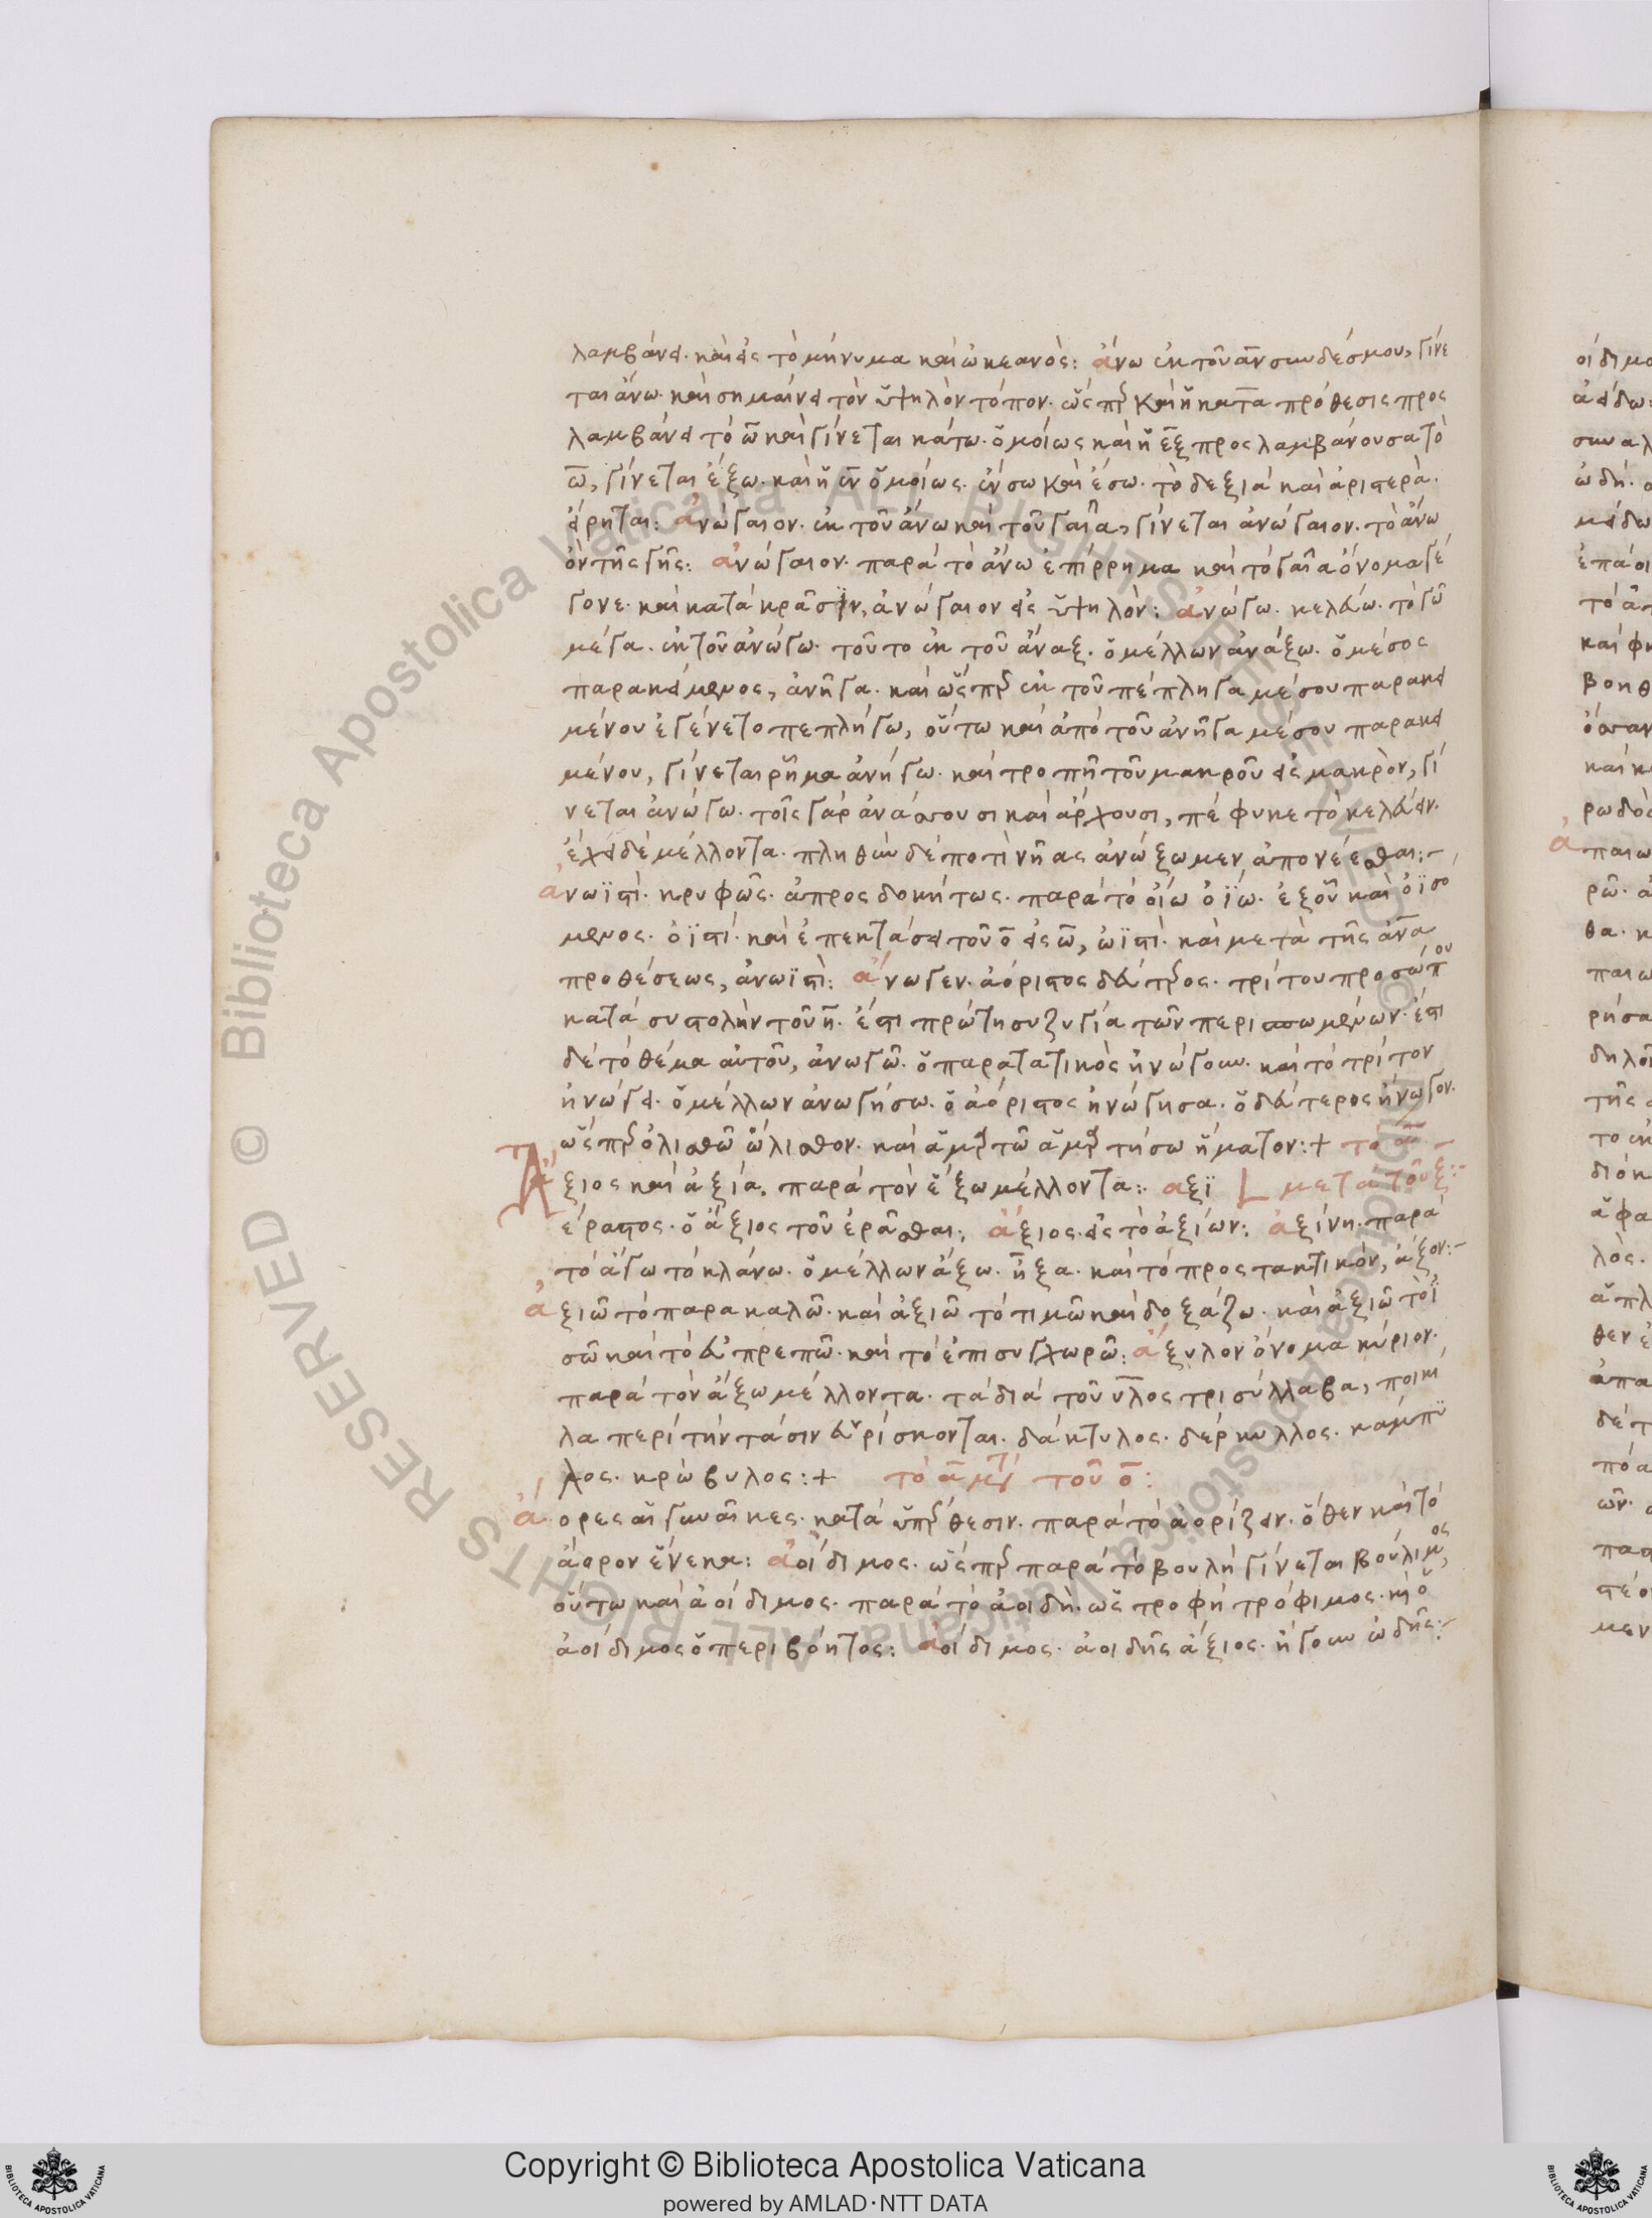 λαμβάνει. καὶ εἰς τὸ μήνυμα καὶ ὠκεανὸς: ἄνω ἐκ τοῦ ἂν συνδέσμου, γίνε
ται ἄνω. καὶ σημαίνει τὸν ὑψηλὸν τόπον. ὥσπερ καὶ ἡ κατὰ πρόθεσις προς
λαμβάνει τὸ ω καὶ γίνεται κάτω. ὁμοίως καὶ ἡ ἐξ προς λαμβάνουσα τὸ
ω, γίνεται ἔξω. καὶ ἡ ἐν ὁμοίως. ἔνσω καὶ ἔσω. τὸ δεξιὰ καὶ ἀριστερὰ.
εἴρηται: ἀνώγαιον. ἐκ τοῦ ἄνω καὶ τοῦ γαῖα, γίνεται ἀνώγαιον. τὸ ἄνω
ὂν τῆς γῆς: ἀνώγαιον. παρὰ τὸ ἄνω ἐπίρρημα καὶ τὸ γαῖα ὄνομα γέ
γονε. καὶ κατὰ κρᾶσιν, ἀνώγαιον εἰς ὑψηλὸν: ἀνώγω. κελεύω. τὸ γω
μέγα. ἐκ τοῦ ἀνώγω. τοῦτο ἐκ τοῦ ἄναξ. ὁ μέλλων ἀνάξω. ὁ μέσος
παρακείμενος, ἀνῆγα. καὶ ὥσπερ ἐκ τοῦ πέπληγα μέσου παρακει
μένου ἐγένετο πεπλήγω, οὕτω καὶ ἀπὸ τοῦ ἀνῆγα μέσου παρακει
μένου, γίνεται ῥῆμα ἀνήγω. καὶ τροπῆ τοῦ μακροῦ εἰς μακρὸν, γί
νεται ἀνώγω. τοῖς γὰρ ἀνάσσουσι καὶ ἄρχουσι, πέφυκε τὸ κελεύειν.
ἔχει δὲ μέλλοντα. πληθὺν δέ ποτὶ νῆας ἀνώξωμεν ἀπονέεσθαι:-
ἀνωϊστὶ. κρυφῶς. ἀπροςδοκήτως. παρὰ τὸ οἴω ὀΐω. ἐξ οὗ καὶ ὀϊσό
μενος. ὀϊστί. καὶ ἐπεκτάσει τοῦ ο εἰς ω, ὠϊστὶ. καὶ μετὰ τῆς ἀνα
προθέσεως, ἀνωϊστὶ: ἄνωγεν. ἀόριστος δεύτερος. τρίτου προσώπου
κατὰ συστολὴν τοῦ η. ἔστι πρώτη συζυγία τῶν περισπωμένων. ἔστι
δὲ τὸ θέμα αὐτοῦ, ἀνωγῶ. ὁ παρατατικὸς ἠνώγουν. καὶ τὸ τρίτον
ἠνώγει. ὁ μέλλων ἀνωγήσω. ὁ ἀόριστος ἠνώγησα. ὁ δεύτερος ἤνωγον.
ὥσπερ ὀλισθῶ ὤλισθον. καὶ ἁμαρτῶ ἁμαρτήσω ἥμαρτον:+ τὸ α
Ἄξιος καὶ ἀξία. παρὰ τὸν ἕξω μέλλοντα: αξϊ μετὰ τοῦ ξ:-
ἔραστος. ὁ ἄξιος τοῦ ἐρᾶσθαι: ἄξιος. εἰς τὸ ἀξιών: ἀξίνη. παρὰ
τὸ ἄγω τὸ κλάνω. ὁ μέλλων ἄξω. ἦξα. καὶ τὸ προςτακτικὸν, ἄξον:-
ἀξιῶ τὸ παρακαλῶ. καὶ ἀξιῶ τὸ τιμῶ καὶ δοξάζω. καὶ ἀξιῶ τὸ ἰ
σῶ καὶ τὸ εὐπρεπῶ. καὶ τὸ ἐπισυγχωρῶ: ἄξυλον ὄνομα κύριον.
παρὰ τὸν ἄξω μέλλοντα. τὰ διὰ τοῦ υλος τρισύλλαβα, ποικί
λα περὶ τὴν τάσιν εὑρίσκονται. δάκτυλος. δέρκυλλος. καμπύ
λος. κρώβυλος:+ τὸ α μετὰ τοῦ ο:
ἄορες αἱ γυναῖκες. κατὰ ὑπέρθεσιν. παρὰ τὸ ἀορίζειν. ὅθεν καὶ τὸ
ἄορον ἕνεκα: ἀοίδιμος. ὥσπερ παρὰ τὸ βουλὴ γίνεται βούλιμος,
οὕτω καὶ ἀοίδιμος. παρὰ τὸ ἀοιδὴ. ὡς τροφὴ τρόφιμος. καὶ ὁ
ἀοίδιμος ὁ περιβόητος: ἀοίδιμος. ἀοιδῆς ἄξιος. ἤγουν ὠδῆς:-
Copyright © Biblioteca Apostolica Vaticana
powered by AMLAD·NTT DATA